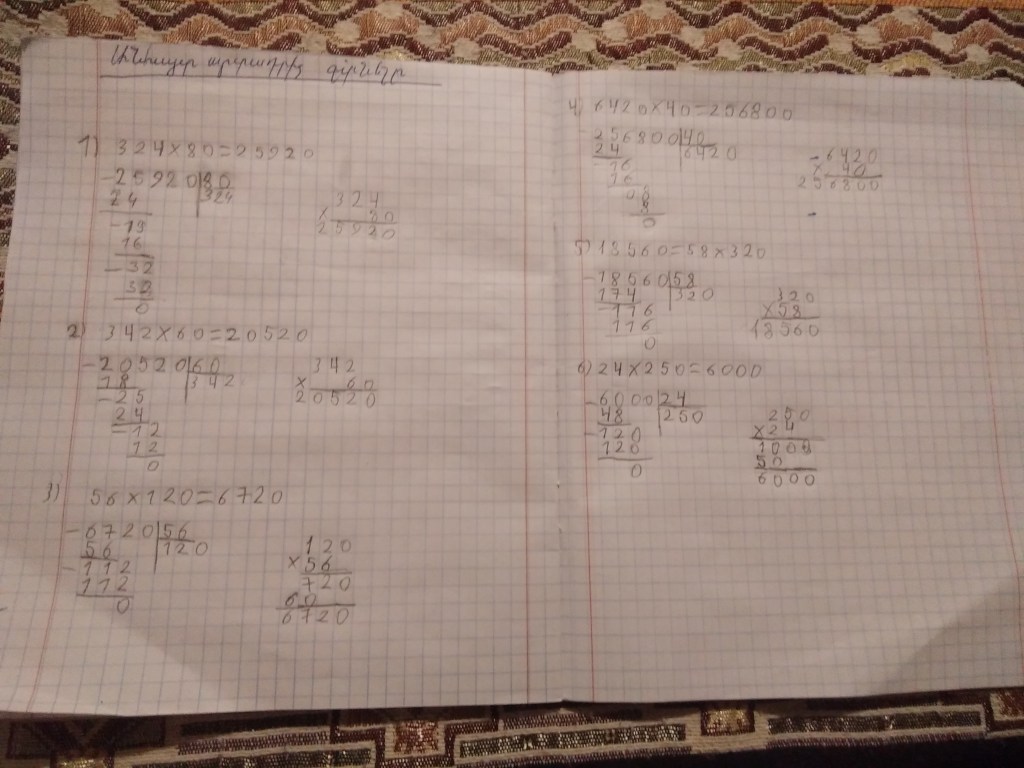 1) 324×80=25920
-25920|80
24 324
-19
16
-32
32
0
324
× 80
25920
2) 342×60=20520
-20520|60
18 342
-25
24
-12
12
0
342
× 60
20520
3) 56×120=6720
-6720|56
56 120
-112
112
0
120
×56
720
60
6720
4) 6420×40=256800
-256800|40
24 6420
16
16
08
8
0
-6420
× 40
256800
5) 18560=58×320
-18560|58
174 320
-116
116
0
320
×58
18560
6) 24×250=6000
-6000|24
48 250
-120
120
0
250
×24
1000
50
6000